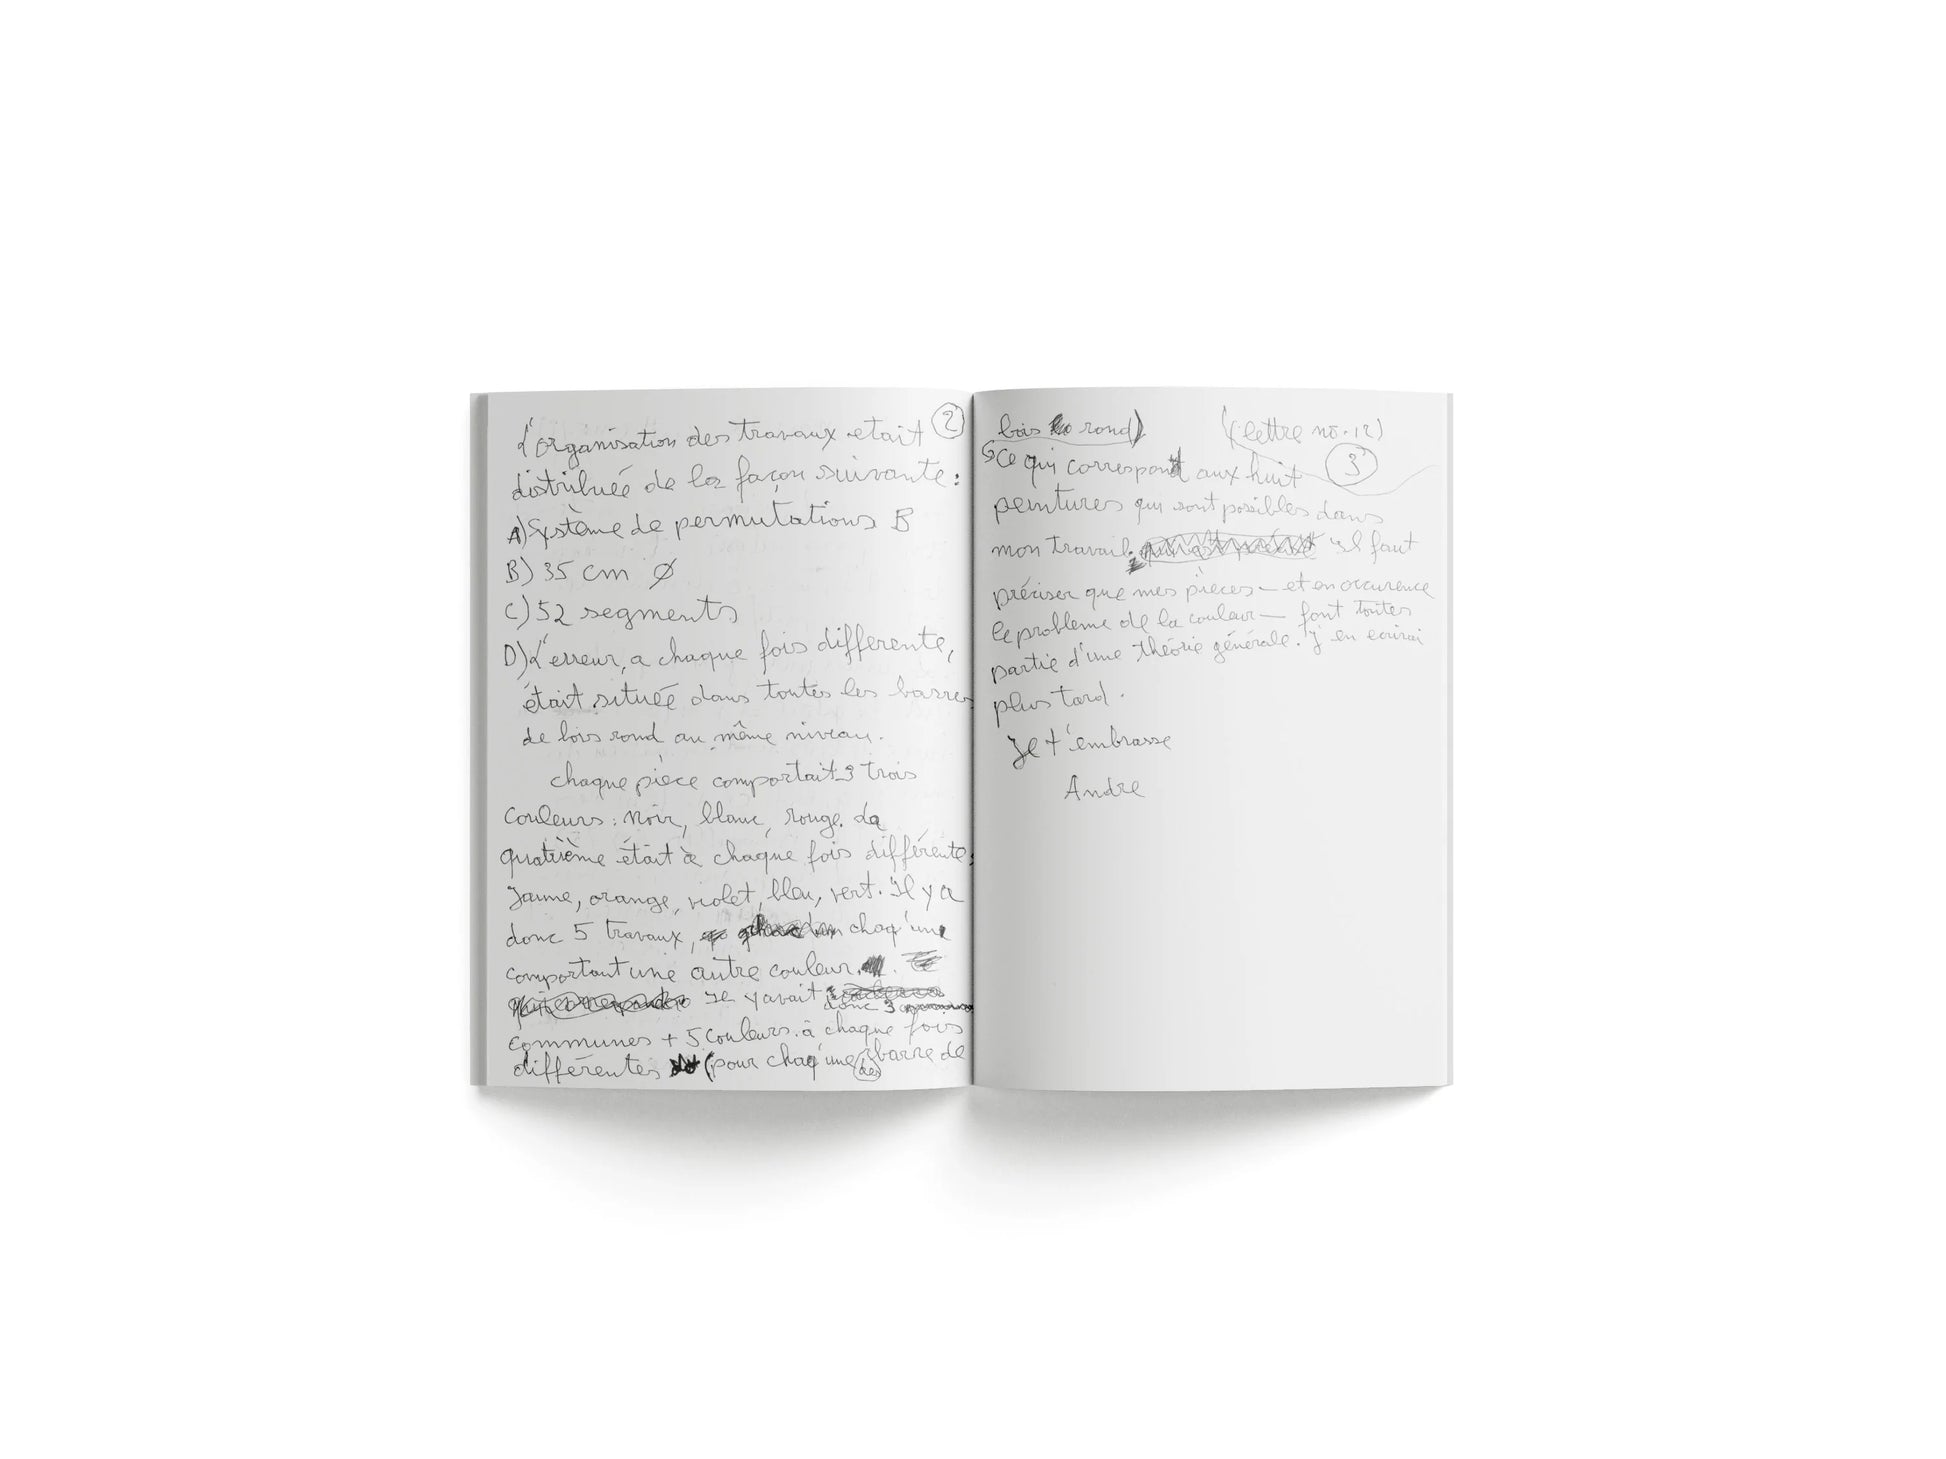 2
L'organisation des travaux etait
distribuée de la façon suivante :
A) Système de permutations B
B) 35 cm Ø
C) 52 segments
D) L'erreur, a chaque fois differente,
était située dans toutes les barres
de bois rond au même niveau.
chaque pièce comportait 3 trois
couleurs : noir, blanc, rouge. La
quatrième était à chaque fois différente :
Jaune, orange, violet, bleu, vert. Il y a
donc 5 travaux, chaq'une
comportant une autre couleur.
Il y avait donc 3
communes + 5 couleurs à chaque fois
différentes (pour chaq'une des barre de
bois rond) (lettre no. 12)
3
Ce qui correspond aux huit
peintures qui sont possibles dans
mon travail. Il faut
préciser que mes pièces — et en occurence
le probleme de la couleur — font toutes
partie d'une théorie générale. J'en ecrirai
plus tard.
Je t'embrasse
Andre